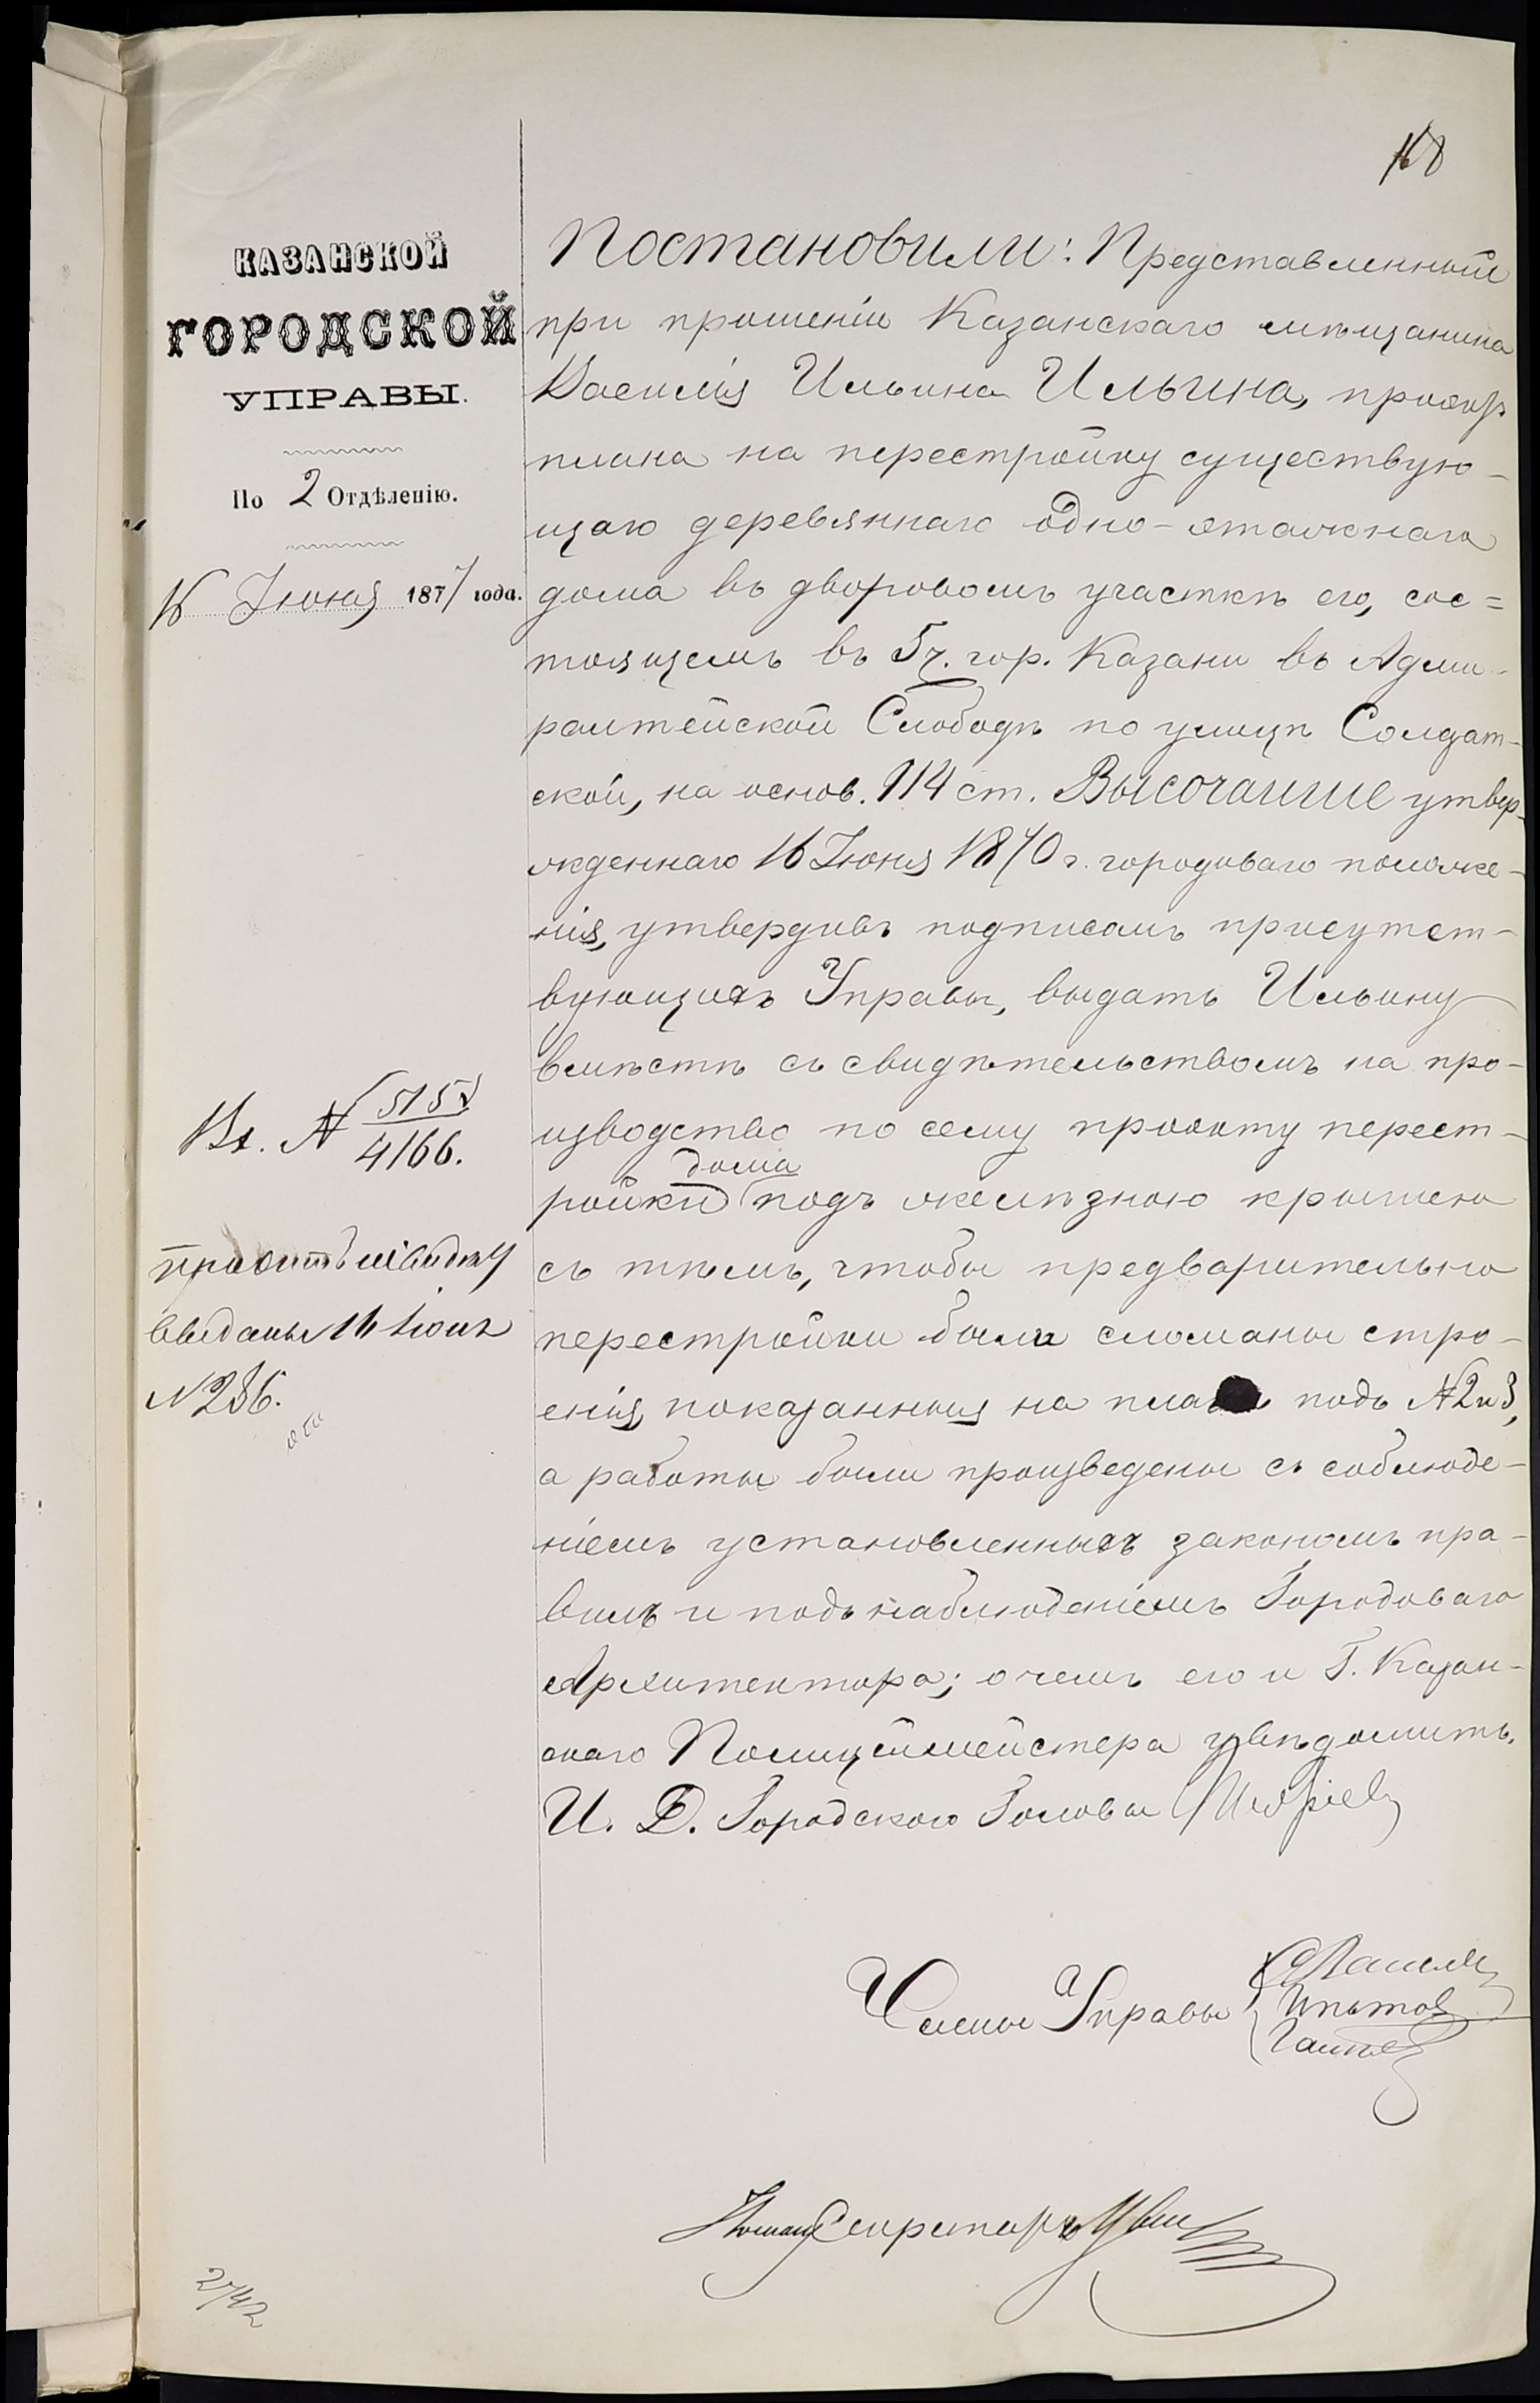 168
КАЗАНСКОЙ
ГОРОДСКОЙ
УПРАВЫ.
По 2 Отдѣленію.
16 Іюня 1877 года.
Вх. № 5157/4166.
выданы 16 іюня
№ 286.
Постановили: Представленный
при прошеніи Казанскаго мѣщанина
Василія Ильина Ильина, проэктъ
плана на перестройку существую-
щаго деревяннаго одно-этажнаго
дома въ дворовомъ участкѣ его, сос=
тоящемъ въ 5 ч. гор. Казани въ Адми-
ралтейской Слободѣ по улицѣ Солдат-
ской, на основ. 114 ст. Высочайше утвер-
жденнаго 16 Іюня 1870 г. городоваго положе-
нія, утвердивъ подписомъ присутст-
вующихъ Управы, выдать Ильину
вмѣстѣ съ свидѣтельствомъ на про-
изводство по сему проэкту перест-
ройки дома подъ желѣзною крышею
съ тѣмъ, чтобы предварительно
перестройки были сломаны стро-
енія, показанныя на планѣ подъ № 2 и 3,
а работы были произведены съ соблюде-
ніемъ установленныхъ закономъ пра-
вилъ и подъ наблюденіемъ Городоваго
Архитектора; о чемъ его и Г. Казан-
скаго Полицеймейстера увѣдомить.
И. Д. Городскаго Головы
Члены Управы
Секретарь
2742